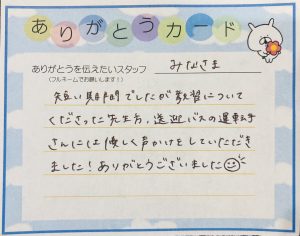 ありがとうカード
ありがとうを伝えたいスタッフ
(フルネームでお願いします!)
みなさま
短い期間でしたが教習について
くださった先生方、送迎バスの運転手
さんには優しく声かけをしていただき
ました!ありがとうございました